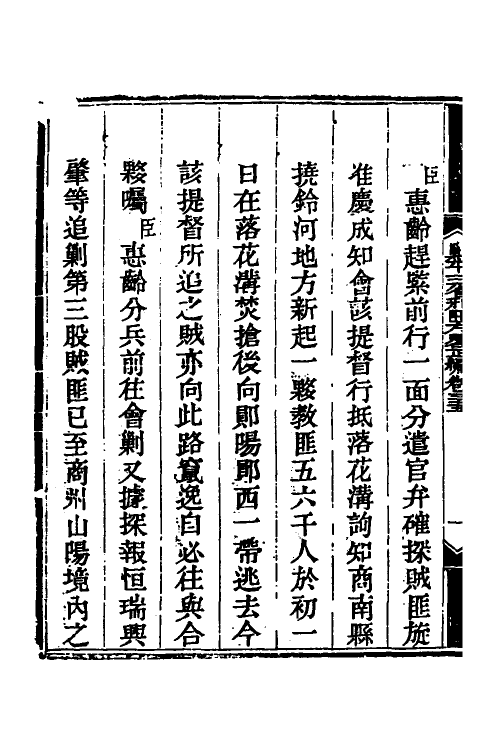 臣惠齡趕緊前行一面分遣官弁確探賊匪旋
准慶成知會該提督行抵落花溝詢知商南縣
撓鈴河地方新起一夥教匪五六千人於初一
日在落花溝焚搶後向鄖陽鄖西一帶逃去今
該提督所追之賊亦向此路竄逸自必往與合
夥囑臣惠齡分兵前往會剿又據探報恒瑞興
肇等追剿第三股賊匪已至商州山陽境內之